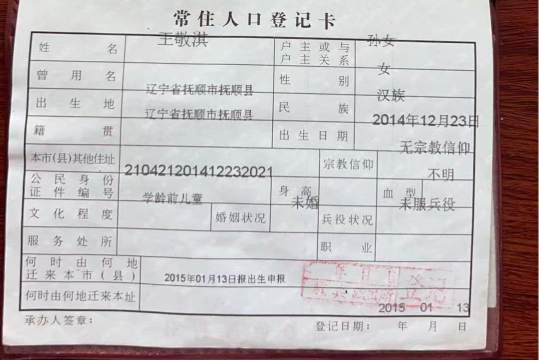 常住人口登记卡
姓名 王敬淇 户主或与户主关系 孙女
曾用名 性别 女
出生地 辽宁省抚顺市抚顺县 民族 汉族
籍贯 辽宁省抚顺市抚顺县 出生日期 2014年12月23日
本市(县)其他住址 宗教信仰 无宗教信仰
公民身份证件编号 210421201412232021 身高 血型 不明
文化程度 学龄前儿童 婚姻状况 未婚 兵役状况 未服兵役
服务处所 职业
何时由何地迁来本市(县) 2015年01月13日报出生申报
何时由何地迁来本址
承办人签章： 登记日期： 2015 年 01 月 13 日